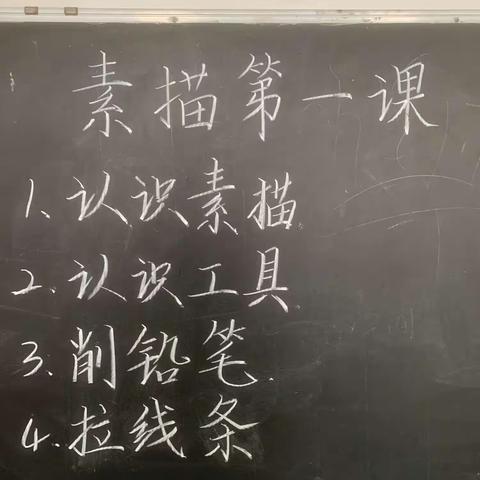 素描第一课
1、认识素描
2.认识工具
3.削铅笔.
4.拉线条